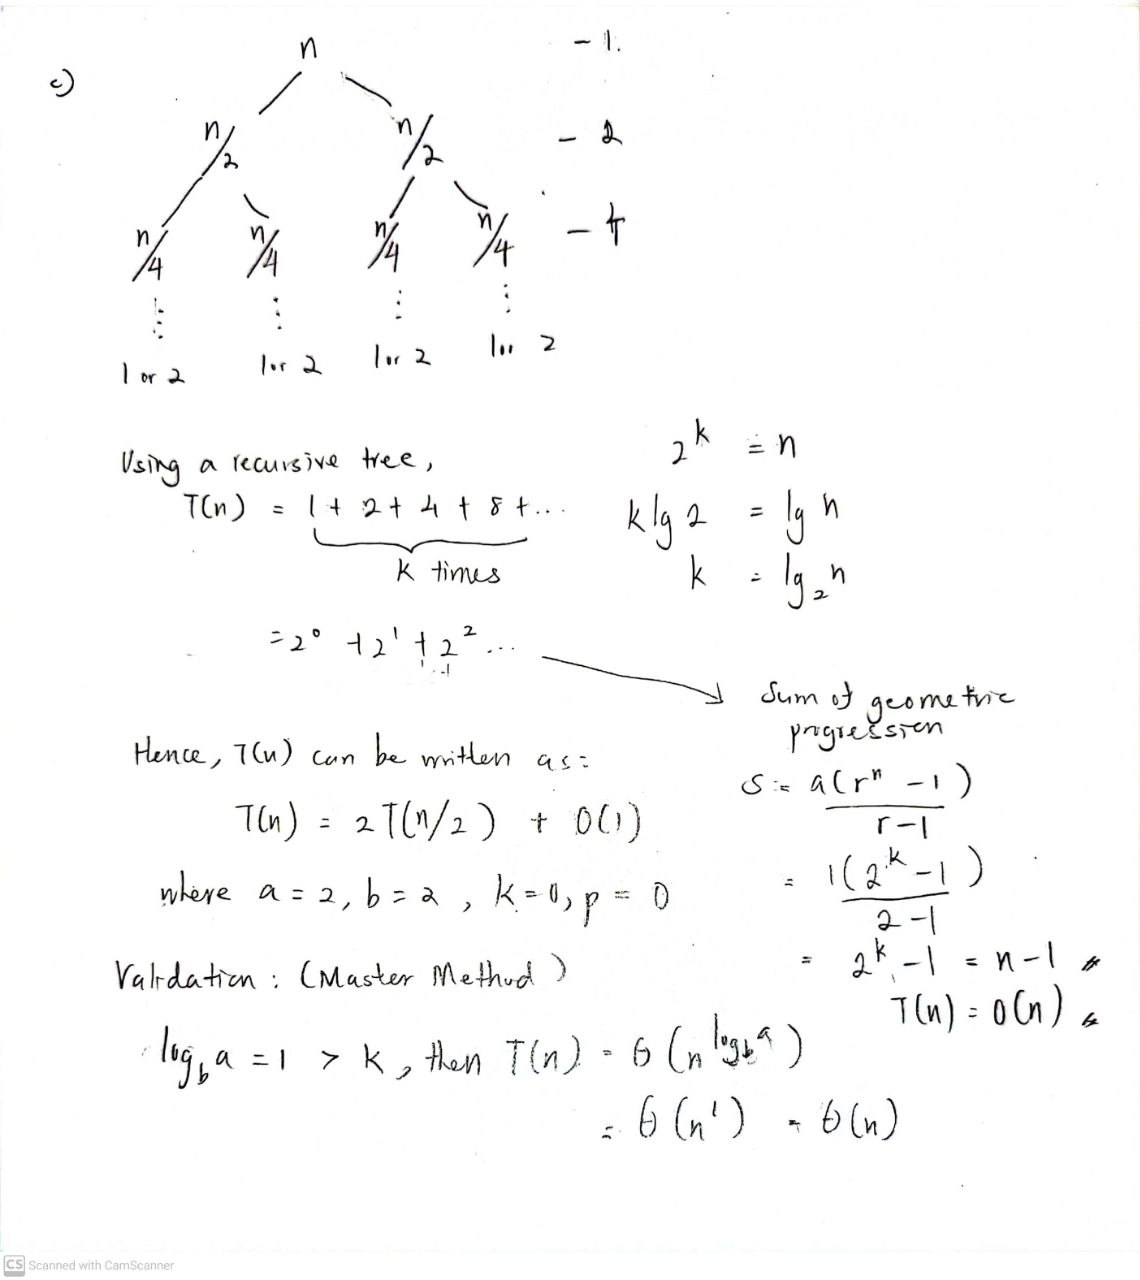 c)
n - 1.
n/2 n/2 - 2
n/4 n/4 n/4 n/4 - 4
1 or 2 1 or 2 1 or 2 1 or 2
Using a recursive tree,
T(n) = 1 + 2 + 4 + 8 + ...
k times
= 2⁰ + 2¹ + 2² ...
2^k = n
k lg 2 = lg n
k = lg₂n
Sum of geometric
progression
S = a(rⁿ - 1)
r - 1
= 1(2^k - 1)
2 - 1
= 2^k - 1 = n - 1
T(n) = O(n)
Hence, T(n) can be written as:
T(n) = 2T(n/2) + O(1)
where a = 2, b = 2, k = 0, p = 0
Validation : (Master Method)
log_b a = 1 > k, then T(n) = θ(n^log_b a)
= θ(n¹) = θ(n)
CS Scanned with CamScanner